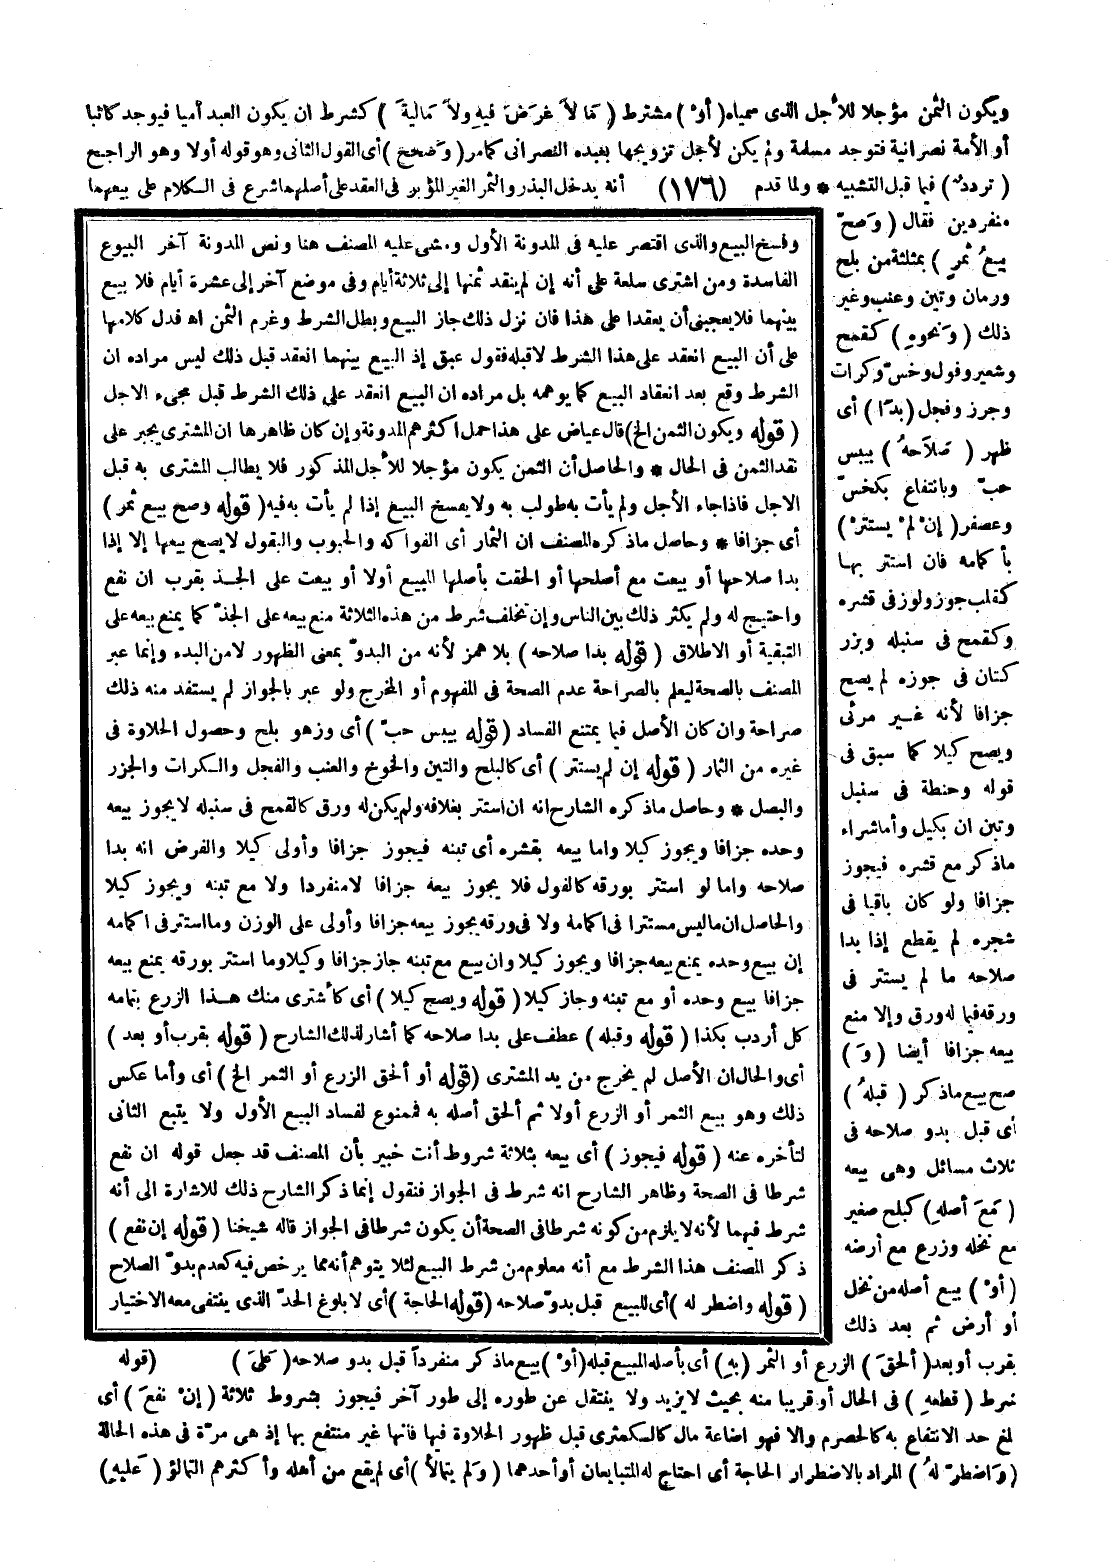 ويكون الثمن مؤجلا للأجل الذى سمياه (أوْ) مشترط (مَا لاَ غَرَضَ فيهِ ولاَ مَاليةَ) كشرط ان يكون العبد أميا فيوجد كاتبا
أو الأمة نصرانية فتوجد مسلمة ولم يكن لأجل تزويجها بعبده النصرانى كمامر (وَصحح) أى القول الثانى وهو قوله أولا وهو الراجح
(ترددٌ) فيما قبل التشبيه * ولما قدم (١٧٦) أنه يدخل البذر والثمر الغير المؤبر فى العقد على أصلهما شرع فى الكلام على بيعهما
منفردين فقال (وَصحّ
بيعُ ثمرٍ) بمثلثة من بلح
ورمان وتين وعنب وغير
ذلك (وَنحوهِ) كقمح
وشعير وفول وخسّ وكرات
وجرز وفجل (بدَا) أى
ظهر (صَلاَحهُ) بيبس
حبّ وبانتفاع بكخسّ
وعصفر (إنْ لمْ يستترْ)
بأكمامه فان استتر بها
كقلب جوز ولوز فى قشره
وكقمح فى سنبله وبزر
كتان فى جوزه لم يصح
جزافا لأنه غير مرئى
ويصح كيلا كما سبق فى
قوله وحنطة فى سنبل
وتبن ان بكيل وأما شراء
ماذكر مع قشره فيجوز
جزافا ولو كان باقيا فى
شجره لم يقطع إذا بدا
صلاحه ما لم يستتر فى
ورقه فيما له ورق وإلا منع
بيعه جزافا أيضا (وَ)
صح بيع ماذكر (قبلهُ)
أى قبل بدو صلاحه فى
ثلاث مسائل وهى بيعه
(مَعَ أصلهِ) كبلح صغير
مع نخله وزرع مع أرضه
(أوْ) بيع أصله من نخل
أو أرض ثم بعد ذلك
بقرب أو بعد (ألحقَ) الزرع أو الثمر (بهِ) أى بأصله المبيع قبله (أوْ) بيع ماذكر منفرداً قبل بدو صلاحه (عَلىَ)
شرط (قطعهِ) فى الحال أو قريبا منه بحيث لا يزيد ولا ينتقل عن طوره إلى طور آخر فيجوز بشروط ثلاثة (إنْ نفعَ) أى
بلغ حد الانتفاع به كالحصرم والا فهو اضاعة مال كالكمثرى قبل ظهور الحلاوة فيها فانها غير منتفع بها إذ هى مرّة فى هذه الحالة
(وَاضطرّ لهُ) المراد بالاضطرار الحاجة أى احتاج له المتبايعان أو أحدهما (وَلم يتمالأْ) أى لم يقع من أهله وأكثرهم التمالؤ (عَليهِ)
وفسخ البيع والذى اقتصر عليه فى المدونة الأول ومشى عليه المصنف هنا ونص المدونة آخر البيوع
الفاسدة ومن اشترى سلعة على أنه إن لم ينقد ثمنها إلى ثلاثة أيام وفى موضع آخر إلى عشرة أيام فلا بيع
بينهما فلا يعجبنى أن يعقدا على هذا فان نزل ذلك جاز البيع وبطل الشرط وغرم الثمن اه فدل كلامها
على أن البيع انعقد على هذا الشرط لا قبله فقول عبق إذ البيع بينهما انعقد قبل ذلك ليس مراده ان
الشرط وقع بعد انعقاد البيع كما يوهمه بل مراده ان البيع انعقد على ذلك الشرط قبل مجىء الاجل
(قوله ويكون الثمن الخ) قال عياض على هذا حمل اكثرهم المدونة وإن كان ظاهرها ان المشترى يجبر على
نقد الثمن فى الحال * والحاصل أن الثمن يكون مؤجلا للأجل المذكور فلا يطالب المشترى به قبل
الاجل فاذا جاء الأجل ولم يأت به طولب به ولا يفسخ البيع إذا لم يأت به فيه (قوله وصح بيع ثمر)
أى جزافا * وحاصل ماذكره المصنف ان الثمار أى الفواكه والحبوب والبقول لا يصح بيعها إلا إذا
بدا صلاحها أو بيعت مع أصلها أو الحقت بأصلها المبيع أولا أو بيعت على الجذ بقرب ان نفع
واحتيج له ولم يكثر ذلك بين الناس وإن تخلف شرط من هذه الثلاثة منع بيعه على الجذّ كما يمنع بيعه على
التبقية أو الاطلاق (قوله بدا صلاحه) بلا همز لأنه من البدوّ بمعنى الظهور لا من البدء وإنما عبر
المصنف بالصحة ليعلم بالصراحة عدم الصحة فى المفهوم أو المخرج ولو عبر بالجواز لم يستفد منه ذلك
صراحة وان كان الأصل فيما يمتنع الفساد (قوله بيبس حبّ) أى وزهو بلح وحصول الحلاوة فى
غيره من الثمار (قوله إن لم يستتر) أى كالبلح والتين والخوخ والعنب والفجل والكرات والجزر
والبصل * وحاصل ماذكره الشارح انه ان استتر بغلافه ولم يكن له ورق كالقمح فى سنبله لا يجوز بيعه
وحده جزافا ويجوز كيلا واما بيعه بقشره أى تبنه فيجوز جزافا وأولى كيلا والفرض انه بدا
صلاحه واما لو استتر بورقه كالفول فلا يجوز بيعه جزافا لا منفردا ولا مع تبنه ويجوز كيلا
والحاصل ان ما ليس مستترا فى اكمامه ولا فى ورقه يجوز بيعه جزافا وأولى على الوزن وما استتر فى اكمامه
إن بيع وحده يمنع بيعه جزافا ويجوز كيلا وان بيع مع تبنه جاز جزافا وكيلا وما استتر بورقه يمنع بيعه
جزافا بيع وحده أو مع تبنه وجاز كيلا (قوله ويصح كيلا) أى كأشترى منك هذا الزرع بتمامه
كل أردب بكذا (قوله وقبله) عطف على بدا صلاحه كما أشار لذلك الشارح (قوله بقرب أو بعد)
أى والحال ان الأصل لم يخرج من يد المشترى (قوله أو ألحق الزرع أو الثمر الخ) أى وأما عكس
ذلك وهو بيع الثمر أو الزرع أولا ثم ألحق أصله به فممنوع لفساد البيع الأول ولا يتبع الثانى
لتأخره عنه (قوله فيجوز) أى بيعه بثلاثة شروط أنت خبير بأن المصنف قد جعل قوله ان نفع
شرطا فى الصحة وظاهر الشارح انه شرط فى الجواز فنقول إنما ذكر الشارح ذلك للاشارة الى أنه
شرط فيهما لأنه لا يلزم من كونه شرطا فى الصحة أن يكون شرطا فى الجواز قاله شيخنا (قوله إن نفع)
ذكر المصنف هذا الشرط مع أنه معلوم من شرط البيع لئلا يتوهم أنه مما يرخص فيه كعدم بدوّ الصلاح
(قوله واضطر له) أى للبيع قبل بدوّ صلاحه (قوله الحاجة) أى لا بلوغ الحدّ الذى ينتفى معه الاختيار
(قوله